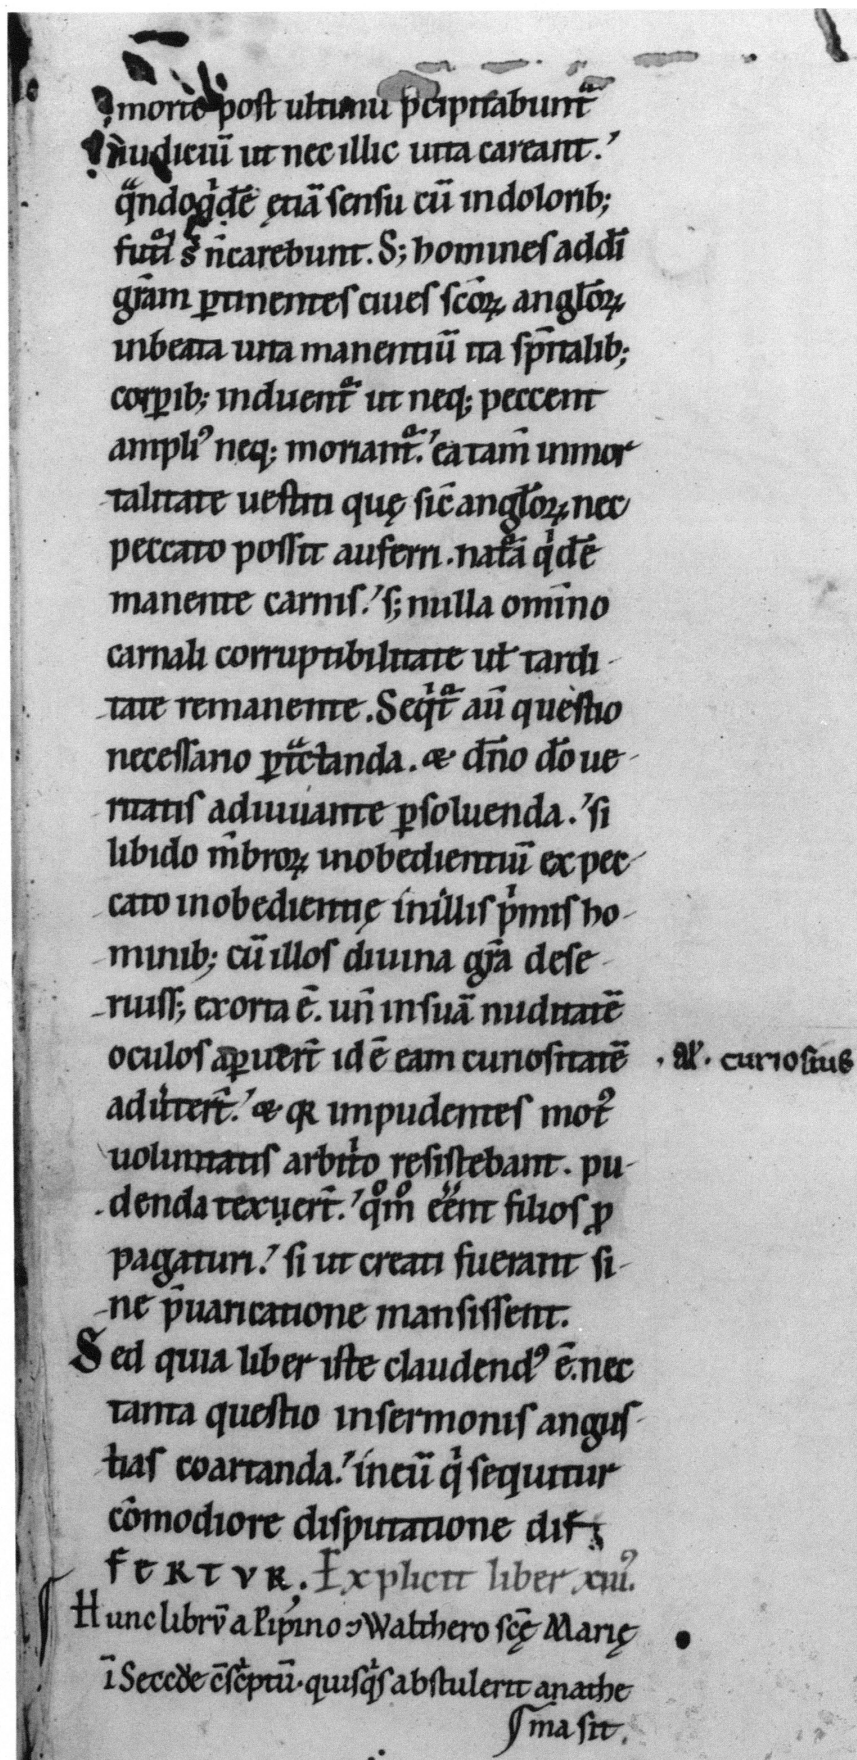 mortē post ultimū p̄cipitabunt᷑
iudiciū ut nec illic uita careant.
qͣndoqͥdē ętiā sensu cū in doloribꝫ
futͥ sͭ n̄ carebunt. Sꝫ homines ad dī
gr̄am ꝑtinentes ciues scōꝝ angloꝝ
in beata uita manentiū ita sp̄italibꝫ
corꝑibꝫ induent᷑ ut neqꝫ peccent
ampliꝰ neqꝫ moriant᷑. ea tam̄ inmor
talitate uestiti quę sic̄ angloꝝ nec
peccato possit auferri. natͣā qͥdē
manente carnis. sꝫ nulla om̄ino
carnali corruptibilitate uł tardi-
tate remanente. Seqͥt᷑ aū questio
necessario ꝑtͣctanda. & dn̄o dō ue-
ritatis adiuuante ꝑsoluenda. si
libido mēbroꝝ inobedientiū ex pec-
cato inobedientię in illis pͥmis ho-
minibꝫ cū illos diuina gr̄a dese-
ruissꝫ exorta ē. un̄ in suā nuditatē
oculos aꝑuer̄t id ē eam curiositatē
.al̄. curiosius
aduͥter̄t. & qꝛ impudentes motꝰ
uoluntatis arbitͥo resistebant. pu-
denda texuer̄t. qͦmͦ eēnt filios ꝓ
pagaturi. si ut creati fuerant si-
ne p̄uaricatione mansissent.
Sed quia liber iste claudendꝰ ē. nec
tanta questio in sermonis angus-
tias coartanda. in eū qͥ sequitur
cōmodiore disputatione dif
FERTVR. Explicit liber xiiiͥꝰ.
Hunc librū a Pipino ⁊ Walthero scę Marię
ī Seccde cōscͥptū. quisqͥs abstulerit anathe
ma sit.